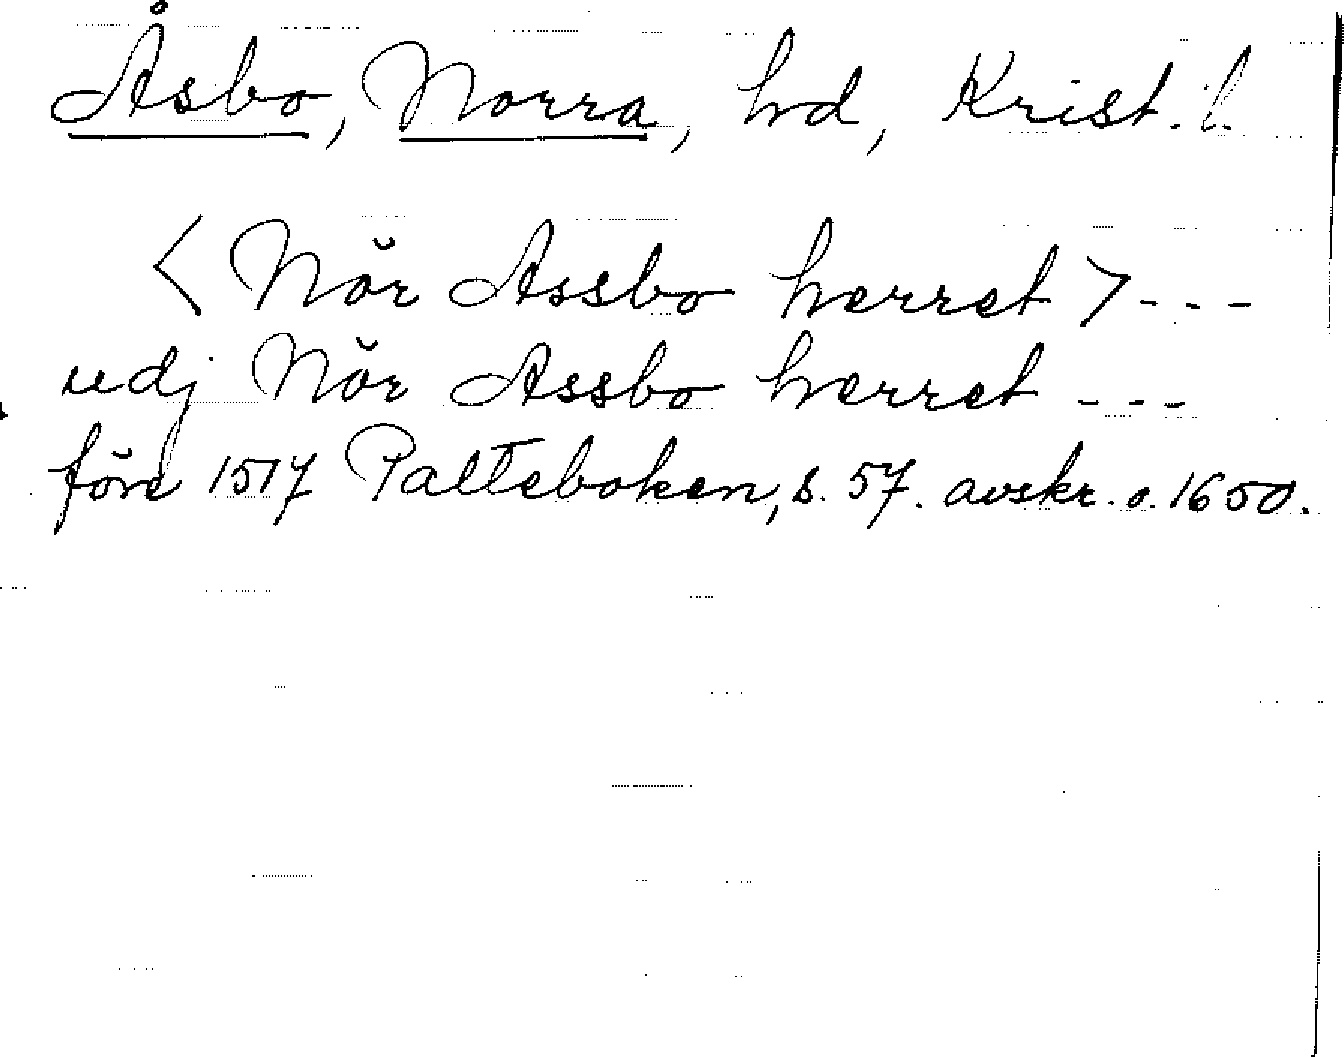 Åsbo, Norra, hd, Krist. l.
<Nör Assbo herret>---
udj Nör Assbo herret ---
före 1517 Palteboken, s. 57. avskr. o. 1650.